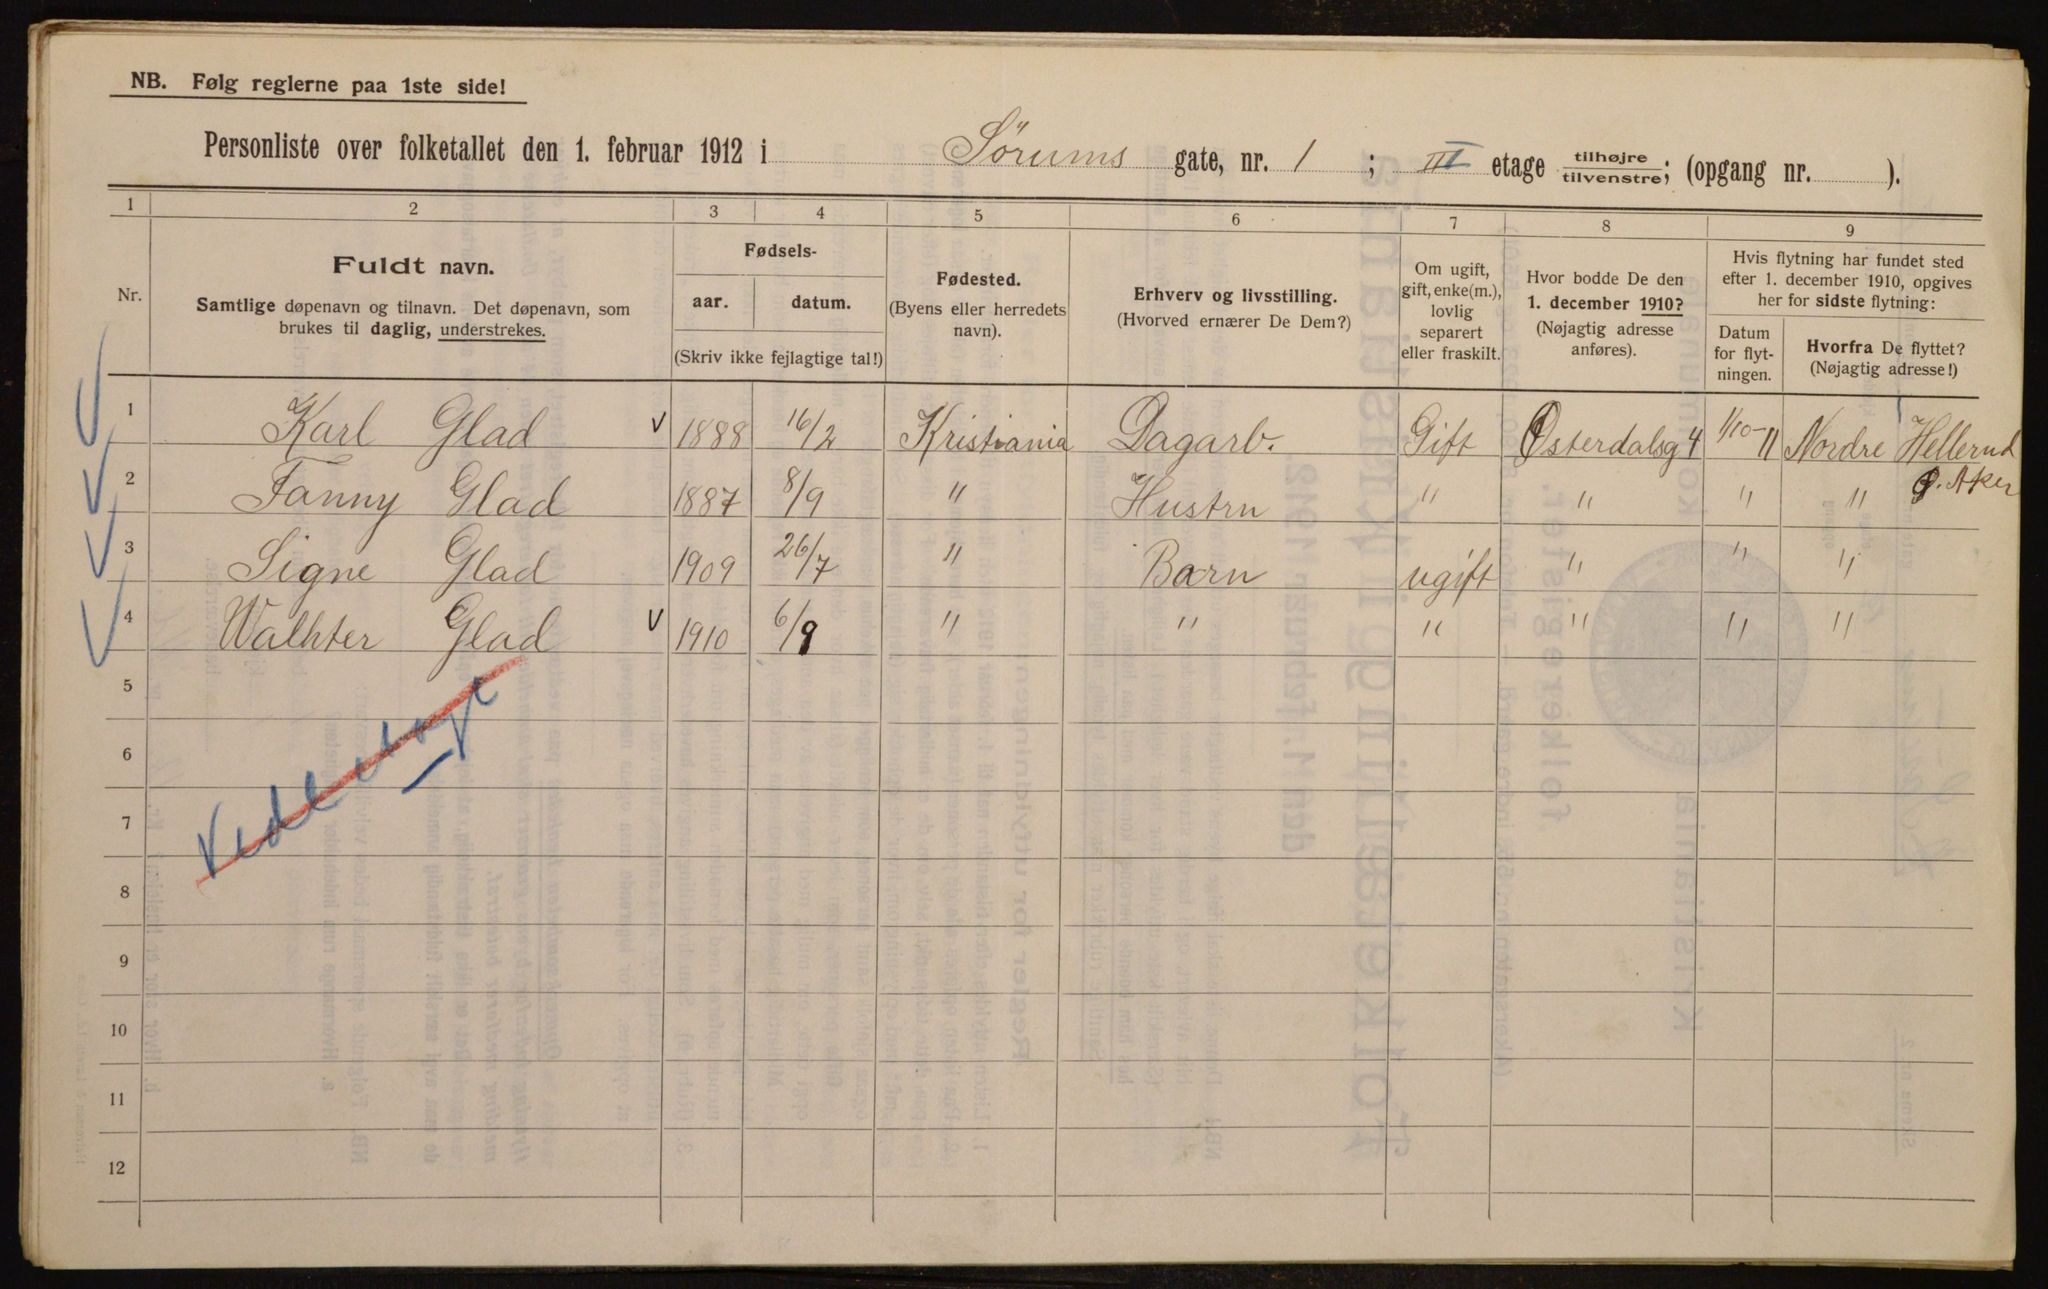 NB. Følg reglerne paa 1ste side!
Personliste over folketallet den 1. februar 1912 i Sørums gate, nr. 1 ; III etage tilhøjre/tilvenstre; (opgang nr. ).
1 2 3 4 5 6 7 8 9
Nr.
Fuldt navn.
Samtlige døpenavn og tilnavn. Det døpenavn, som
brukes til daglig, understrekes.
Fødsels-
aar. datum.
(Skriv ikke fejlagtige tal!)
Fødested.
(Byens eller herredets
navn).
Erhverv og livsstilling.
(Hvorved ernærer De Dem?)
Om ugift,
gift, enke(m.),
lovlig
separert
eller fraskilt.
Hvor bodde De den
1. december 1910?
(Nøjagtig adresse
anføres).
Hvis flytning har fundet sted
efter 1. december 1910, opgives
her for sidste flytning:
Datum
for flyt-
ningen.
Hvorfra De flyttet?
(Nøjagtig adresse!)
1 Karl Glad v 1888 16/2 Kristiania Dagarb. Gift Østerdalsg 4 1/10-11 Nordre Hellerud
Ø. Aker
2 Fanny Glad 1887 8/9 " Hustru " " " "
3 Signe Glad 1909 26/7 " Barn ugift " " "
4 Walhter Glad v 1910 6/9 " " " " " "
5
6
7
8
9
10
11
12